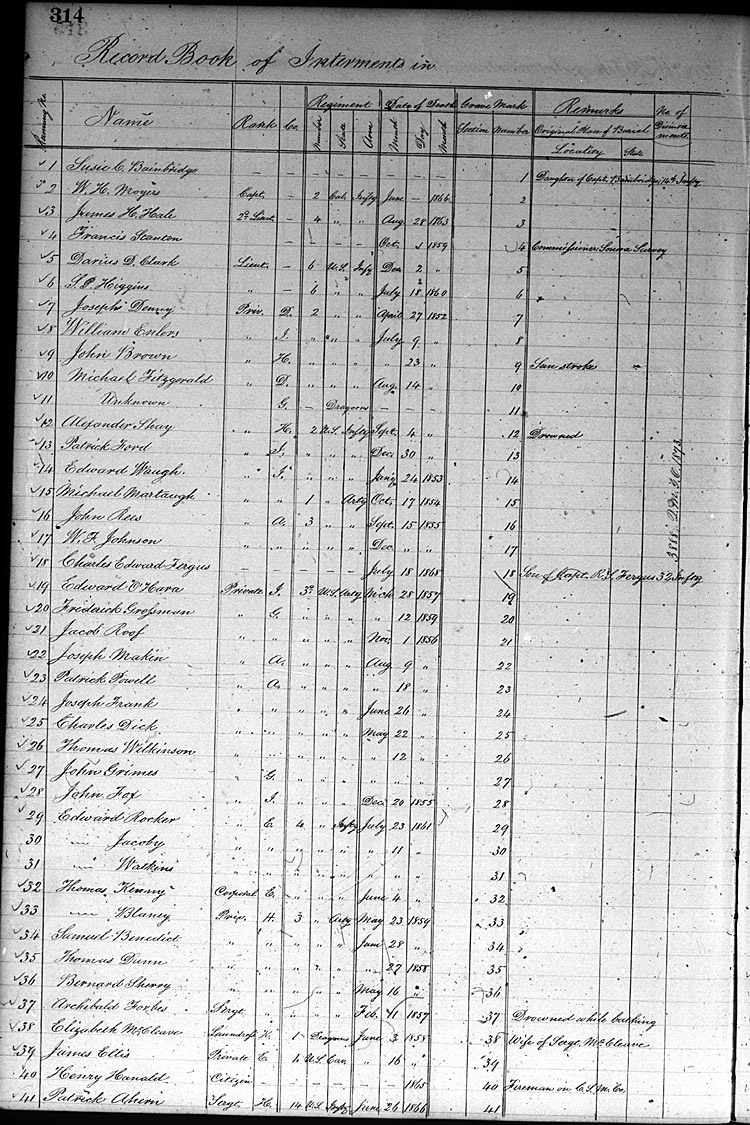 314
Record Book of Interments in
Running No. Name Rank Co. Regiment Date of Death Grave Mark Remarks No. of
Number State Arm Month Day Section Number Original Place of Burial
Locality State
1 Susie C. Bainbridge — — — — — — — — 1 Daughter of Capt. Bainbridge 14th Infty
2 W. H. Moyes Capt. — 2 Cal. Infty June — 1866 2
3 James H. Hale 2d Lieut. — 4 " " Aug. 28 1863 3
4 Francis Stanton — — — — Oct. 1 1859 4 Commissioner Sonora Survey
5 Darius D. Clark Lieut. — 6 U.S. Infy Dec. 2 " 5
6 S. P. Higgins " — 6 " " July 18 1860 6
7 Joseph Denny Priv. D. 2 " " April 27 1852 7
8 William Ehlers " I. " " " July 9 " 8
9 John Brown " H. " " " " 23 " 9 Sun stroke
10 Michael Fitzgerald " D. " " " Aug. 14 " 10
11 Unknown G. — Dragoons — — — 11
12 Alexander Shay " H. 2 U.S. Infty Sept. 4 " 12 Drowned
13 Patrick Ford " I. " " " Dec. 30 " 13
14 Edward Waugh " I. " " " Jan'y 24 1853 14
15 Michael Martaugh " " 1 " Arty Oct. 17 1854 15
16 John Rees " A. 3 " " Sept. 15 1855 16
17 W. F. Johnson " " " " " Dec. " " 17
18 Charles Edward Fergus — — — — — July 18 1868 18 Son of Capt. R. L. Fergus 32 Infty
19 Edward O'Hara Private I. 3d U.S. Arty Mch 28 1857 19
20 Friderick Grossman " G. " " " " 12 1859 20
21 Jacob Roof " " " " " Nov. 1 1856 21
22 Joseph Makin " A. " " " Aug 9 " 22
23 Patrick Powell " A. " " " " 18 " 23
24 Joseph Frank " " " " " June 26 " 24
25 Charles Dick " " " " " May 22 " 25
26 Thomas Wilkinson " " " " " " 12 " 26
27 John Grimes " G. " " " " " " 27
28 John Fox " I. " " " Dec. 20 1855 28
29 Edward Rocker " E. 4 " Infty July 23 1861 29
30 — Jacoby " " " " " " 11 " 30
31 — Watkins " " " " " " " " 31
32 Thomas Kenny Corporal E. " " " June 4 " 32
33 — Blaney Priv. H. 3 " Arty May 23 1859 33
34 Samuel Benedict " " " " " June 28 " 34
35 Thomas Dunn " " " " " " 27 1858 35
36 Bernard Sherry " " " " " May 16 " 36
37 Archibald Forbes Sergt " " " " Feb. 11 1857 37 Drowned while bathing
38 Elizabeth McCleave Laundress K. 1 — Dragoons June 3 1858 38 Wife of Sergt. McCleave
39 James Ellis Private E. 1 U.S. Cav. " 16 " 39
40 Henry Hanald Citizen — — — — — — 1865 40 Fireman on C.S.N.Co.
41 Patrick Ahern Sergt. H. 14 U.S. Infty June 26 1866 41